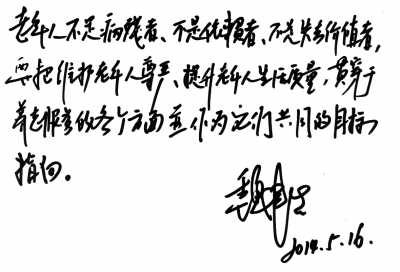 老年人不是病残者、不是依赖者、不是失去价值者,
要把维护老年人尊严、提升老年人生活质量,贯穿于
养老服务的各个方面并作为它们共同的目标
指向。
2014.5.16.